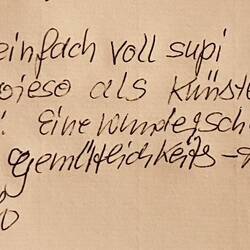 einfach voll supi
wieso als Künste
! Eine wundersch
gemütlichkeits-